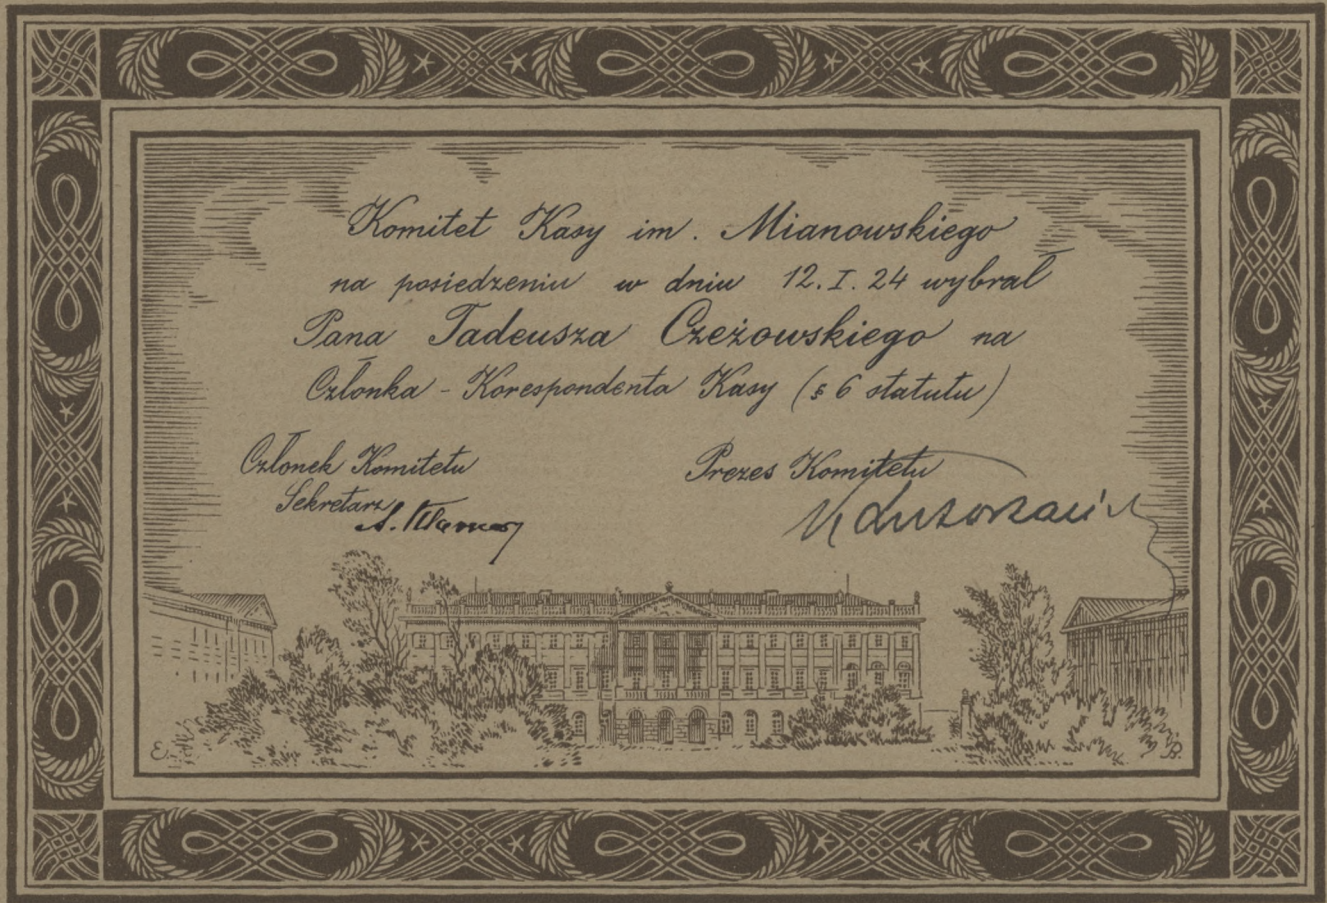 Komitet Kasy im. Mianowskiego
na posiedzeniu w dniu 12.I.24 wybrał
Pana Tadeusza Czeżowskiego na
Członka - Korespondenta Kasy (§ 6 statutu)
Członek Komitetu
Sekretarz
Prezes Komitetu
E.
B.